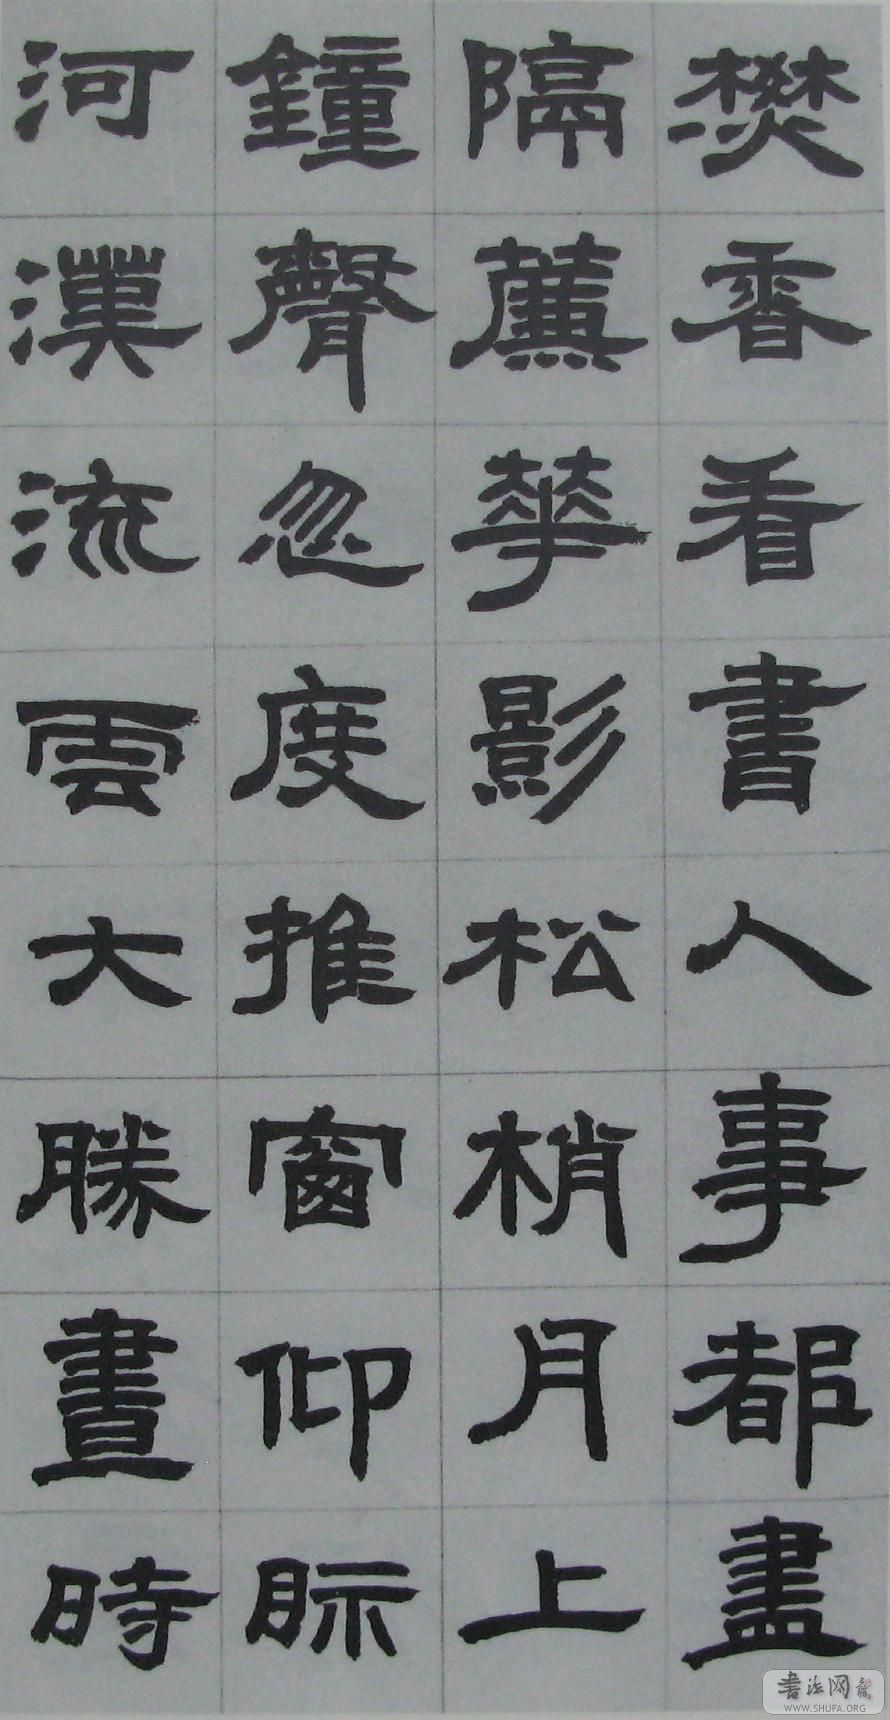 焚香看書人事都盡
隔簾華影松梢月上
鐘聲忽度推窗仰眎
河漢流雲大勝晝時
書法网
WWW.SHUFA.ORG